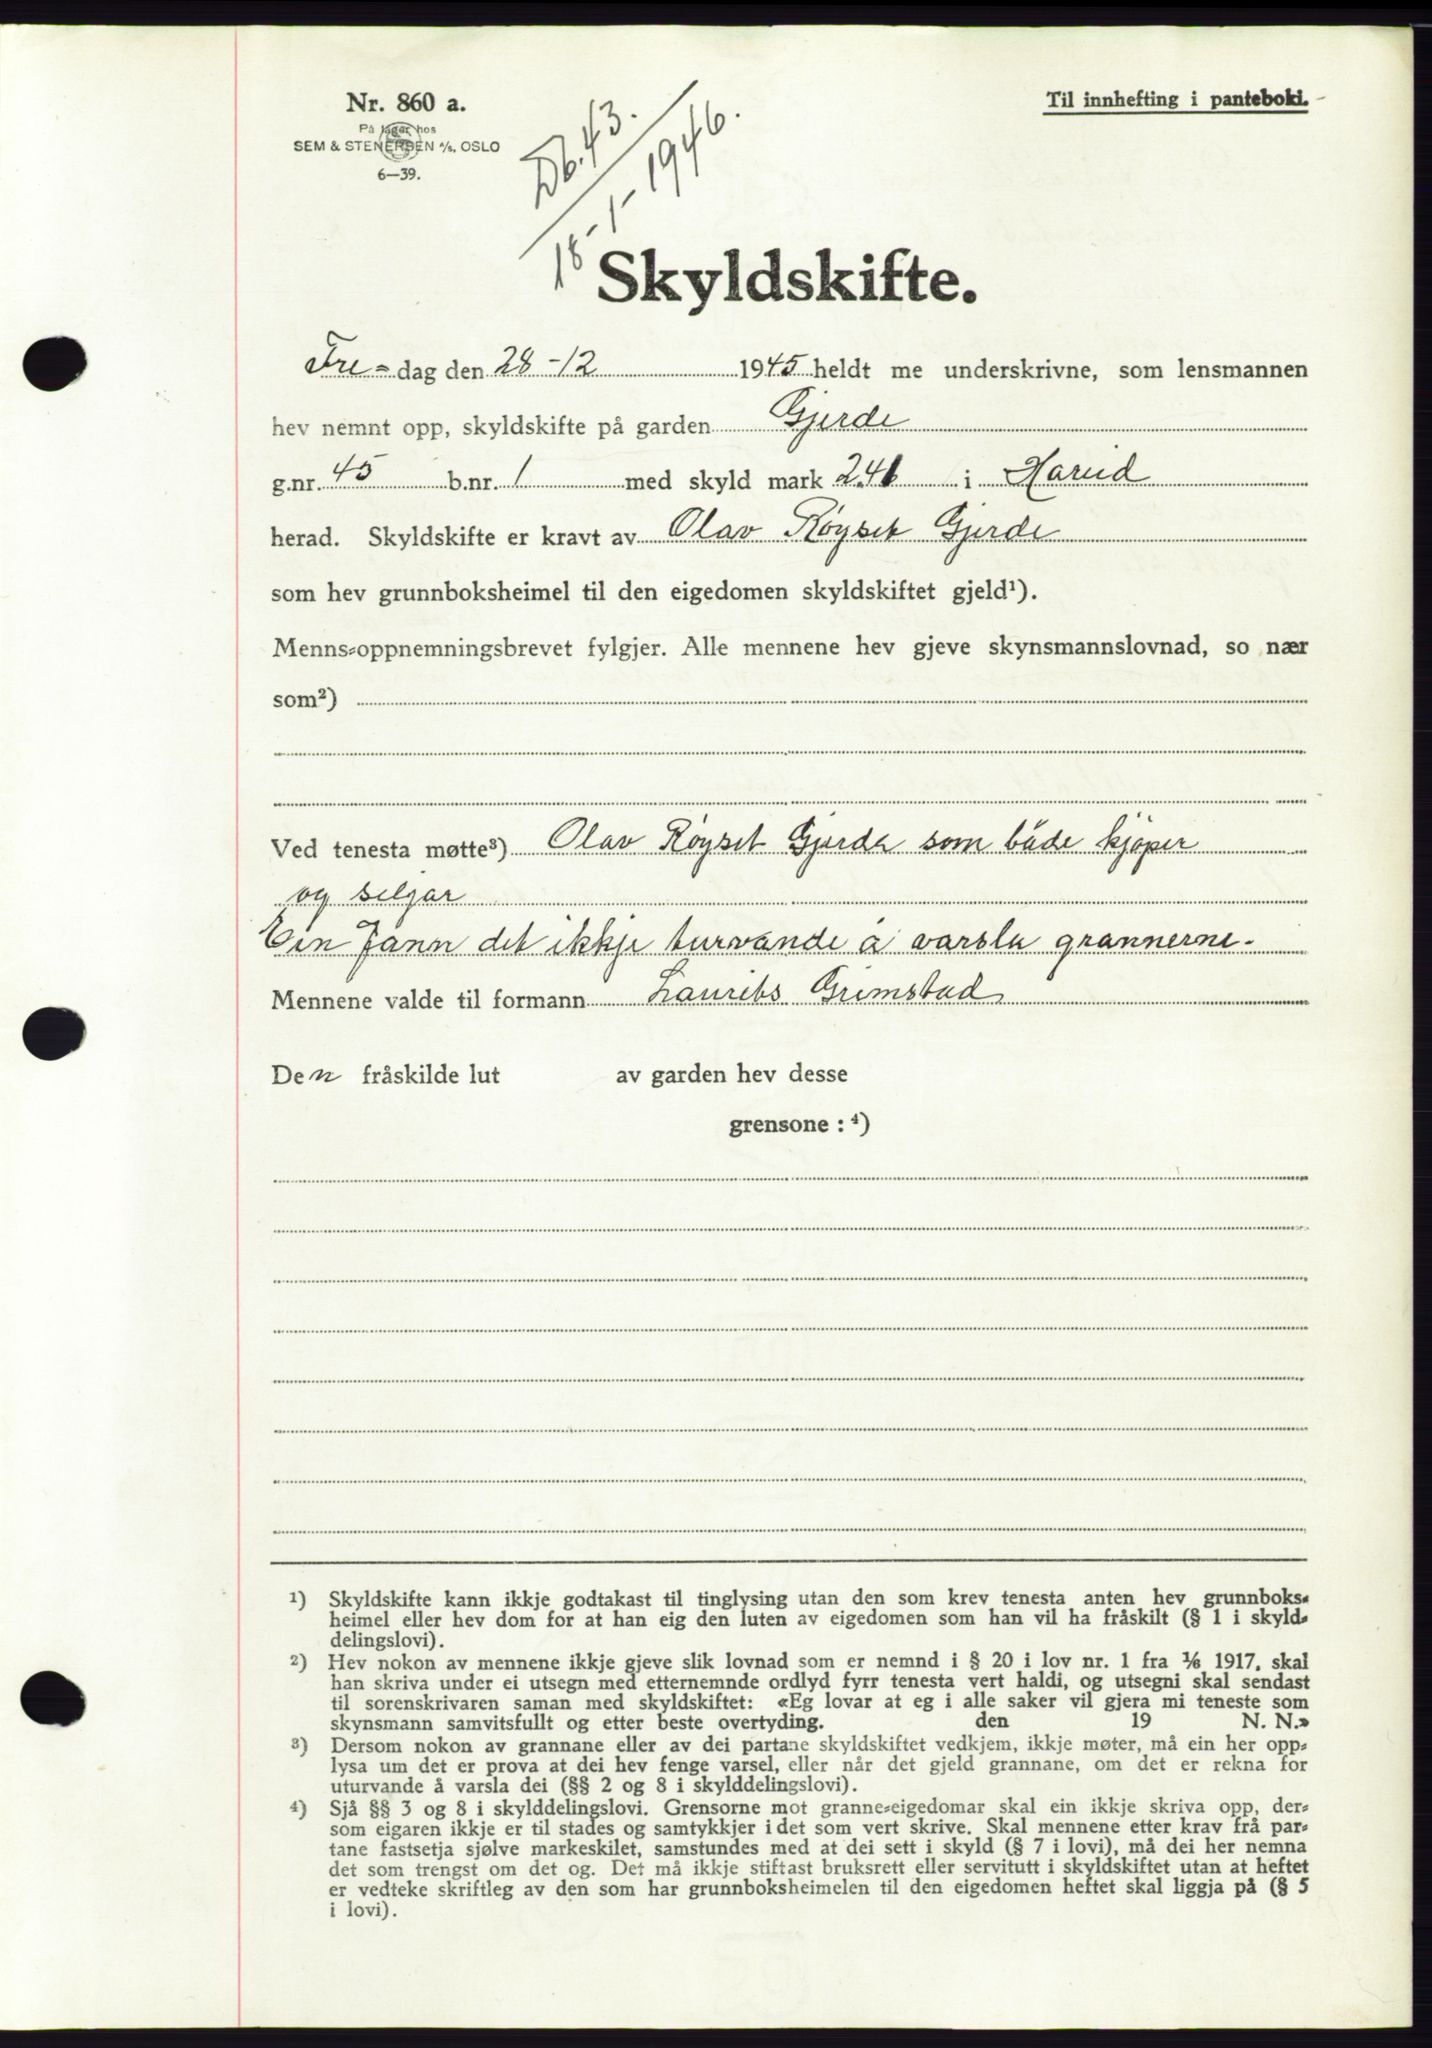 Nr. 860 a.
På lager hos
SEM & STENERSEN A/S, OSLO
6—39.
Til innhefting i panteboki.
Db. 43.
18-1-1946.
Skyldskifte.
Fre= dag den 28-12 1945 heldt me underskrivne, som lensmannen
hev nemnt opp, skyldskifte på garden Gjerde
g.nr. 45 b.nr. 1 med skyld mark 2.41 i Hareid
herad. Skyldskifte er kravt av Olav Röyset Gjerde
som hev grunnboksheimel til den eigedomen skyldskiftet gjeld¹).
Menns-oppnemningsbrevet fylgjer. Alle mennene hev gjeve skynsmannslovnad, so nær
som²)
Ved tenesta møtte³) Olav Röyset Gjerde som både kjöper
og seljar
Ein fann det ikkje turvande å varsla grannerne.
Mennene valde til formann Laurits Grimstad
Den fråskilde lut av garden hev desse
grensone : ⁴)
¹) Skyldskifte kann ikkje godtakast til tinglysing utan den som krev tenesta anten hev grunnboks-
heimel eller hev dom for at han eig den luten av eigedomen som han vil ha fråskilt (§ 1 i skyld-
delingslovi).
²) Hev nokon av mennene ikkje gjeve slik lovnad som er nemnd i § 20 i lov nr. 1 fra 1/6 1917, skal
han skriva under ei utsegn med etternemnde ordlyd fyrr tenesta vert haldi, og utsegni skal sendast
til sorenskrivaren saman med skyldskiftet: «Eg lovar at eg i alle saker vil gjera mi teneste som
skynsmann samvitsfullt og etter beste overtyding. den 19 N. N.»
³) Dersom nokon av grannane eller av dei partane skyldskiftet vedkjem, ikkje møter, må ein her opp-
lysa um det er prova at dei hev fenge varsel, eller når det gjeld grannane, om det er rekna for
uturvande å varsla dei (§§ 2 og 8 i skylddelingslovi).
⁴) Sjå §§ 3 og 8 i skylddelingslovi. Grensorne mot granne-eigedomar skal ein ikkje skriva opp, der-
som eigaren ikkje er til stades og samtykkjer i det som vert skrive. Skal mennene etter krav frå par-
tane fastsetja sjølve markeskilet, samstundes med at dei sett i skyld (§ 7 i lovi), må dei her nemna
det som trengst om det og. Det må ikkje stiftast bruksrett eller servitutt i skyldskiftet utan at heftet
er vedteke skriftleg av den som har grunnboksheimelen til den eigedomen heftet skal liggja på (§ 5
i lovi).